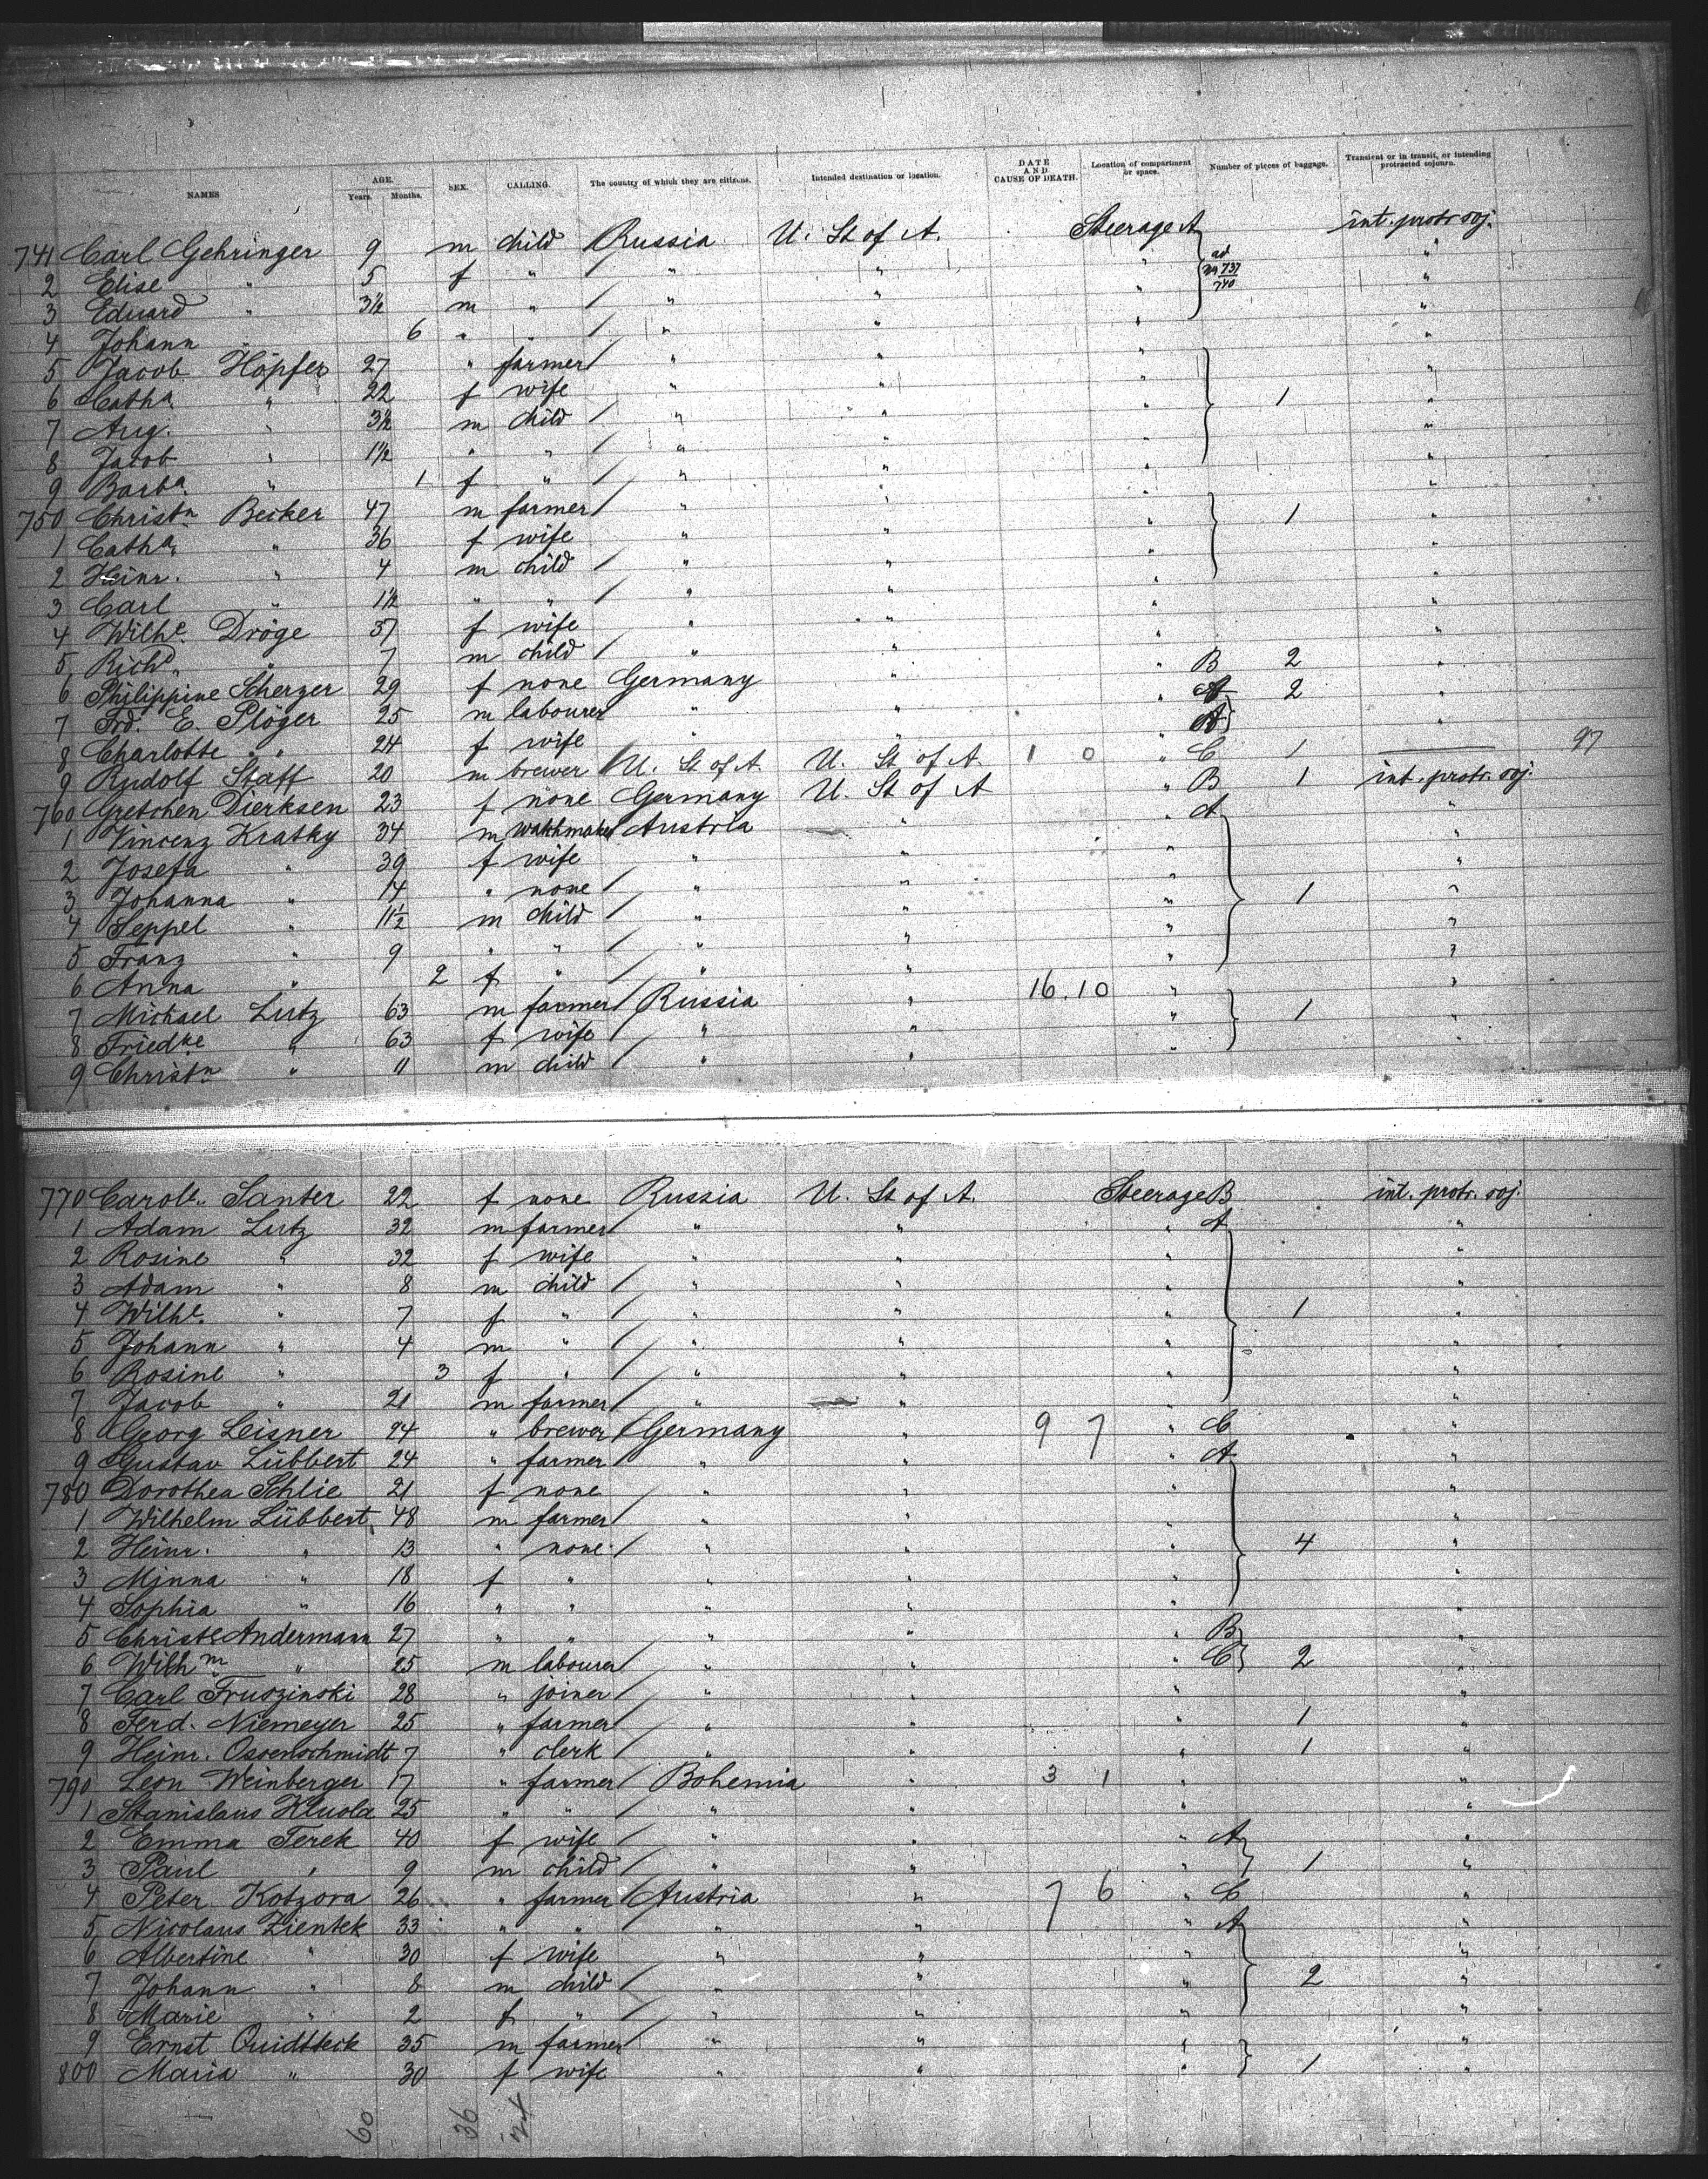 NAMES AGE. Years. Months. SEX. CALLING. The country of which they are citizens. Intended destination or location. DATE AND CAUSE OF DEATH. Location of compartment or space. Number of pieces of baggage. Transient or in transit, or intending protracted sojourn.
741 Carl Gehringer 9 m child Russia U. St of A. Steerage A int. protr. soj.
2 Elise " 5 f " " " " ad No 737 "
3 Eduard " 3½ m " " " " 740 "
4 Johann " 6 " " " " " "
5 Jacob Höpfer 27 " farmer " " " "
6 Catha " 22 f wife " " " 1 "
7 Aug. " 3½ m child " " " "
8 Jacob " 1½ " " " " " "
9 Barba " 1 f " " " " "
750 Christn Becker 47 m farmer " " " 1 "
1 Catha " 36 f wife " " " "
2 Heinr. " 4 m child " " " "
3 Carl " 1½ " " " " " "
4 Wilhe Dröge 37 f wife " " " "
5 Richd " 7 m child " " " B 2 "
6 Philippine Scherzer 29 f none Germany " " A 2 "
7 Frd. E. Plöger 25 m labourer " " " A "
8 Charlotte " 24 f wife " " " C 1
9 Rudolf Staff 20 m brewer U. St of A. U. St of A. 1 0 " B 1 97
760 Gretchen Dierksen 23 f none Germany U. St of A " A int. protr. soj.
1 Vincenz Kratky 34 m watchmaker Austria " " "
2 Josefa " 39 f wife " " " "
3 Johanna " 14 " none " " " 1 "
4 Seppel " 11½ m child " " " "
5 Franz " 9 " " " " " "
6 Anna " 2 f " " " "
7 Michael Lutz 63 m farmer Russia " 16.10 " 1 "
8 Friedke " 63 f wife " " " "
9 Christn " 11 m child " " " "
770 Carole Santer 22 f none Russia U. St of A. Steerage B int. protr. soj.
1 Adam Lutz 32 m farmer " " " A "
2 Rosine " 32 f wife " " " "
3 Adam " 8 m child " " " "
4 Wilhe " 7 f " " " " 1 "
5 Johann " 4 m " " " " "
6 Rosine " 3 f " " " " "
7 Jacob " 21 m farmer " " " "
8 Georg Leisner 24 " brewer Germany " 9 7 " C "
9 Gustav Lübbert 24 " farmer " " " A "
780 Dorothea Schlie 21 f none " " " "
1 Wilhelm Lübbert 48 m farmer " " " "
2 Heinr. " 13 " none " " " 4 "
3 Minna " 18 f " " " " "
4 Sophia " 16 " " " " " "
5 Christe Andermann 27 " " " " " B "
6 Wilhm " 25 m labourer " " " C 2 "
7 Carl Fruszinski 28 " joiner " " " "
8 Ferd. Niemeyer 25 " farmer " " " 1 "
9 Heinr. 7 " clerk " " " 1 "
790 Leon Weinberger 17 " farmer Bohemia " 3 1 " "
1 Stanislaus 25 " " " " " "
2 Emma Terek 40 f wife " " " A "
3 Paul " 9 m child " " " 1 "
4 Peter Kotzora 26 " farmer Austria " 7 6 " C "
5 Nicolaus Zientek 33 " " " " " A "
6 Albertine " 30 f wife " " " "
7 Johann " 8 m child " " " 2 "
8 Marie " 2 f " " " " "
9 Ernst 35 m farmer " " " "
800 Maria " 30 f wife " " " 1 "
60 36 24